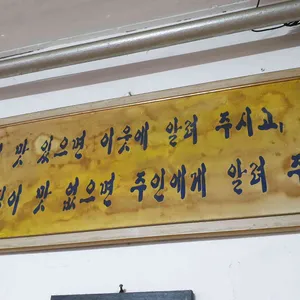 맛 있으면 이웃에 알려 주시고,
이 맛 없으면 주인에게 알려 주